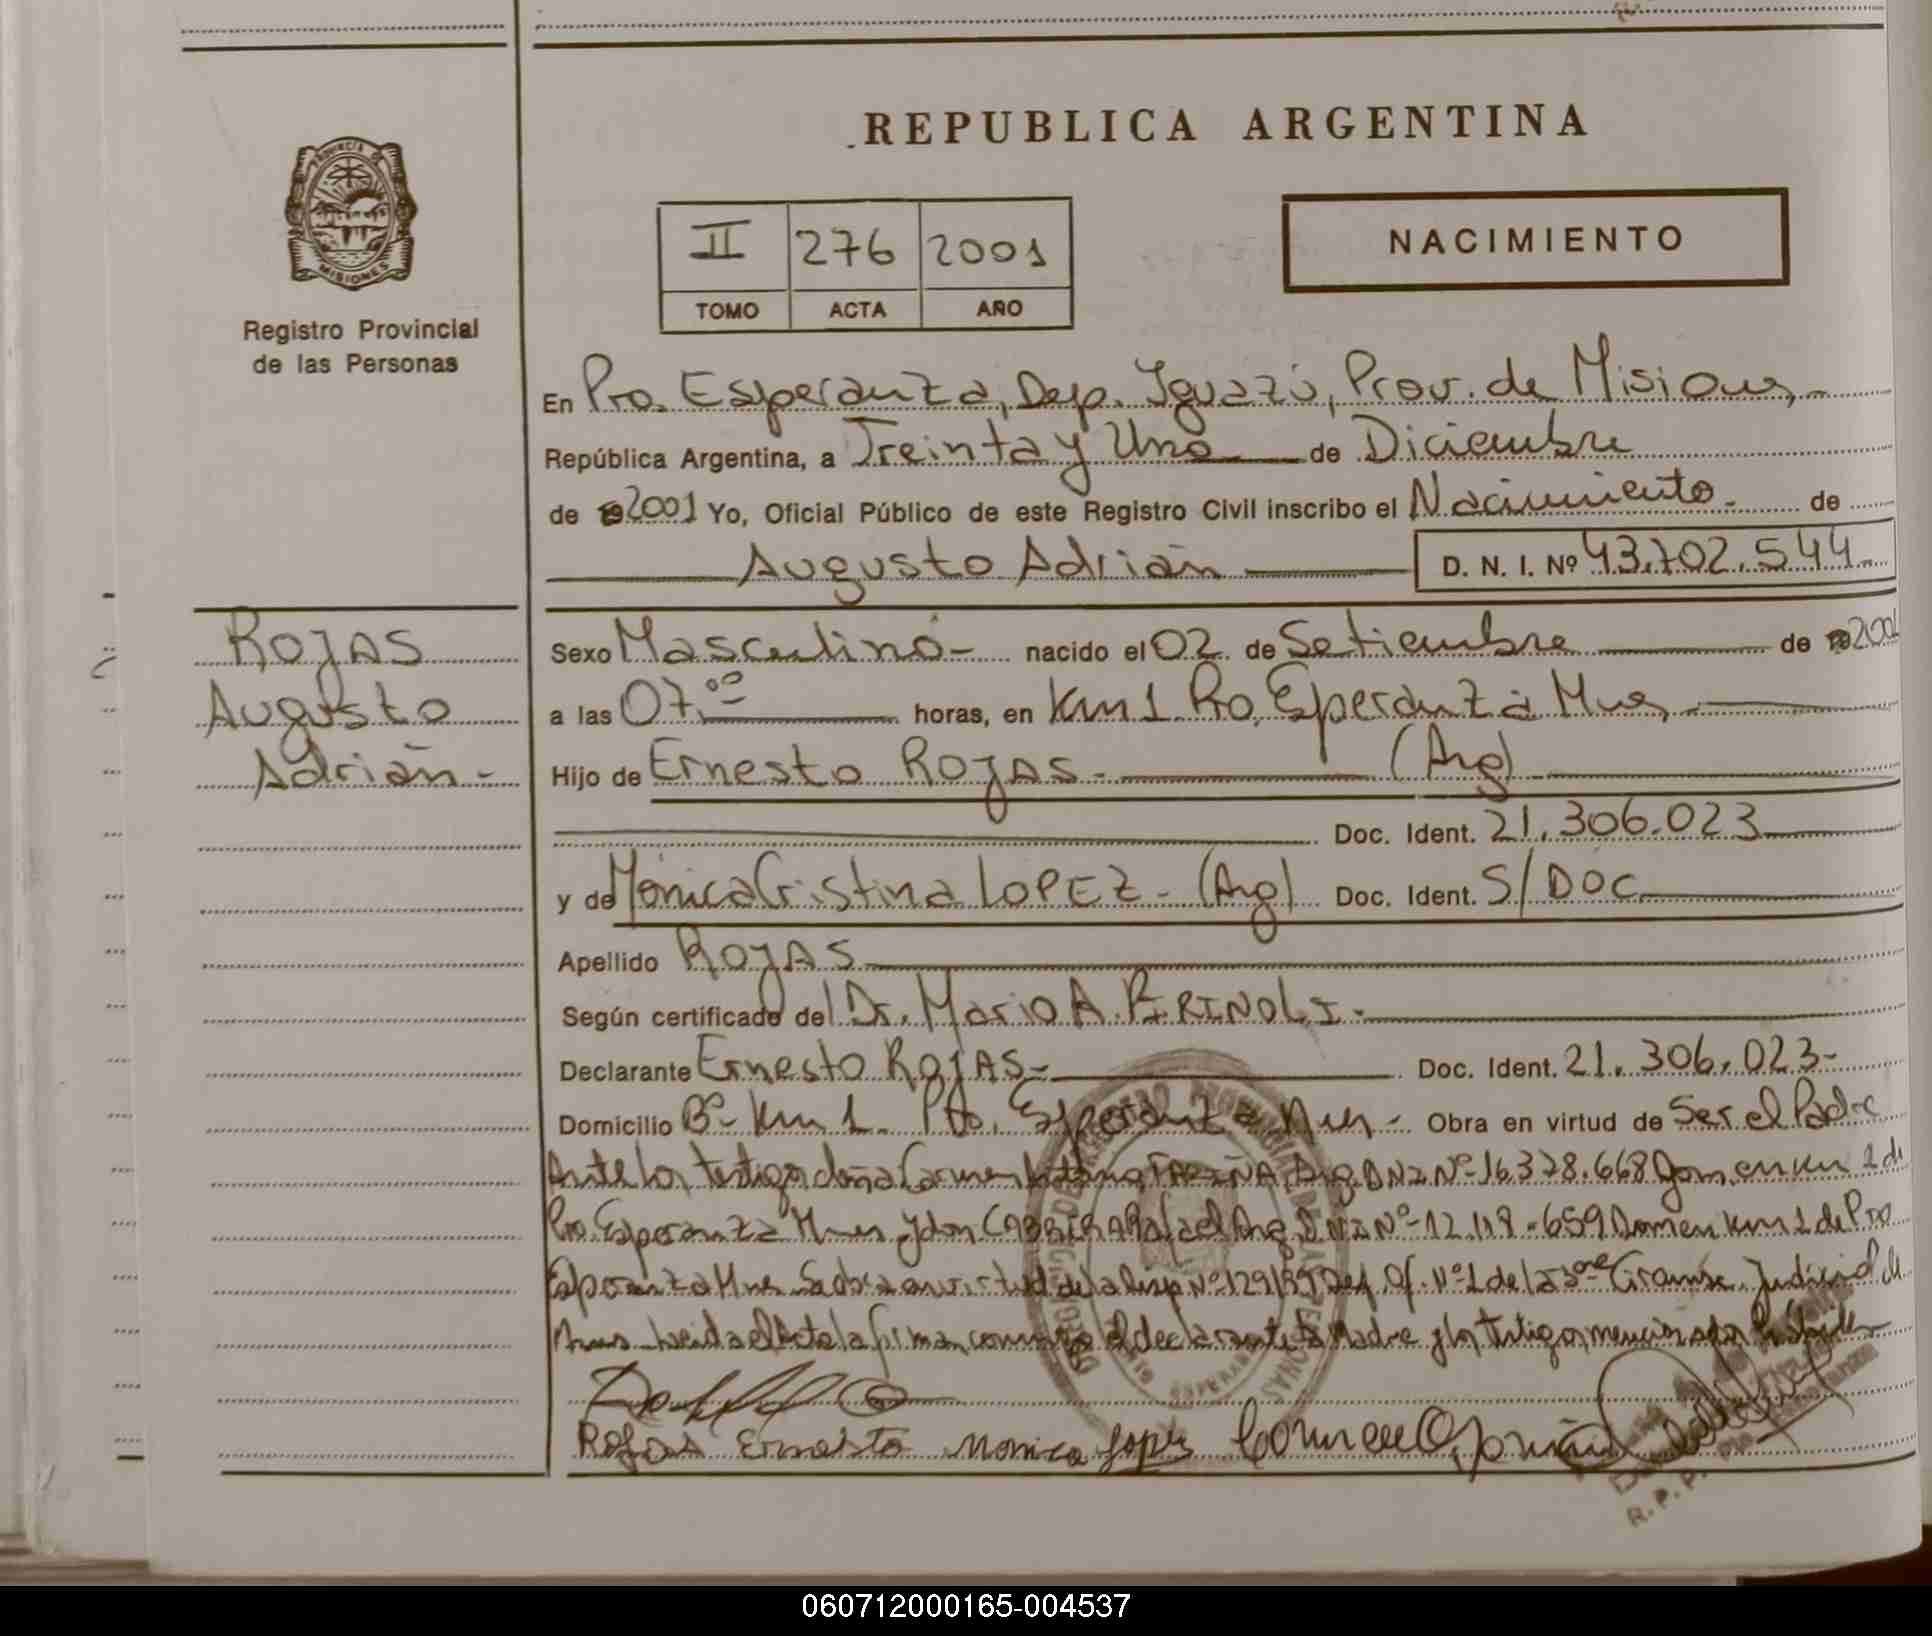 REPUBLICA ARGENTINA
PROVINCIA DE
MISIONES
Registro Provincial
de las Personas
II 276 2001
TOMO ACTA AÑO
NACIMIENTO
En Pto. Esperanza, Dep. Iguazú, Prov. de Misiones,
República Argentina, a Treinta y Uno de Diciembre
de 2001 Yo, Oficial Público de este Registro Civil inscribo el Nacimiento de
Augusto Adrián D. N. I. Nº 43.702.544
ROJAS
Augusto
Adrián-
Sexo Masculino- nacido el 02 de Setiembre de 2001
a las 07,00 horas, en Km 1 Pto, Esperanza Mnes,
Hijo de Ernesto ROJAS- (Arg)
Doc. Ident. 21.306.023
y de Mónica Cristina LOPEZ- (Arg) Doc. Ident. S/DOC
Apellido ROJAS
Según certificado del Dr. Mario A. PIRINOLI.-
Declarante Ernesto ROJAS- Doc. Ident. 21.306.023-
Domicilio Bº- Km 1. Pto. Esperanza Mnes- Obra en virtud de Ser el Padre
Ante los testigos doña Carmen FARIÑA, Arg. DNI Nº-16.378.668 Dom. en Km 1 de
Pto. Esperanza Mnes y don CABRERA Rafael Arg. DNI Nº-12.118.659 Dom en Km 1 de Pto
Esperanza Mnes Se obra en virtud de la Disp Nº 129/89 Def. Of. Nº-1 de la 3era Circunsc. Judicial de
Mnes- Leida el Acta la firman conmigo el declarante la Madre y los Testigos mencionados
Rojas Ernesto Monica Lopez
060712000165-004537